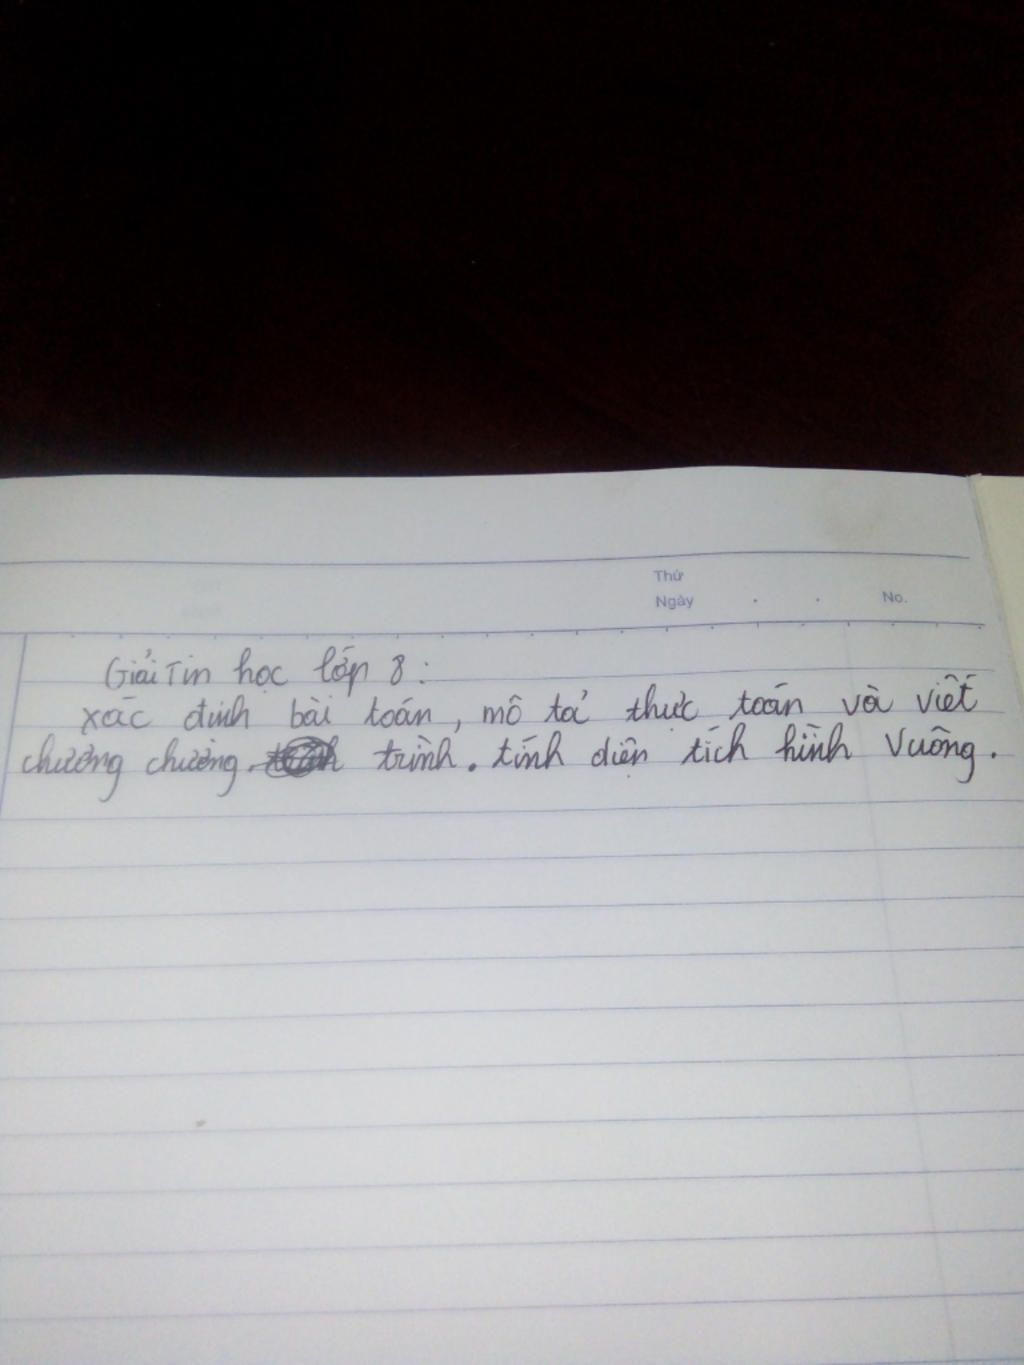 Thứ
Ngày . . No.
Giải Tin học lớp 8:
xác định bài toán, mô tả thực toán và viết
chương chương. trình. tính diện tích hình vuông.